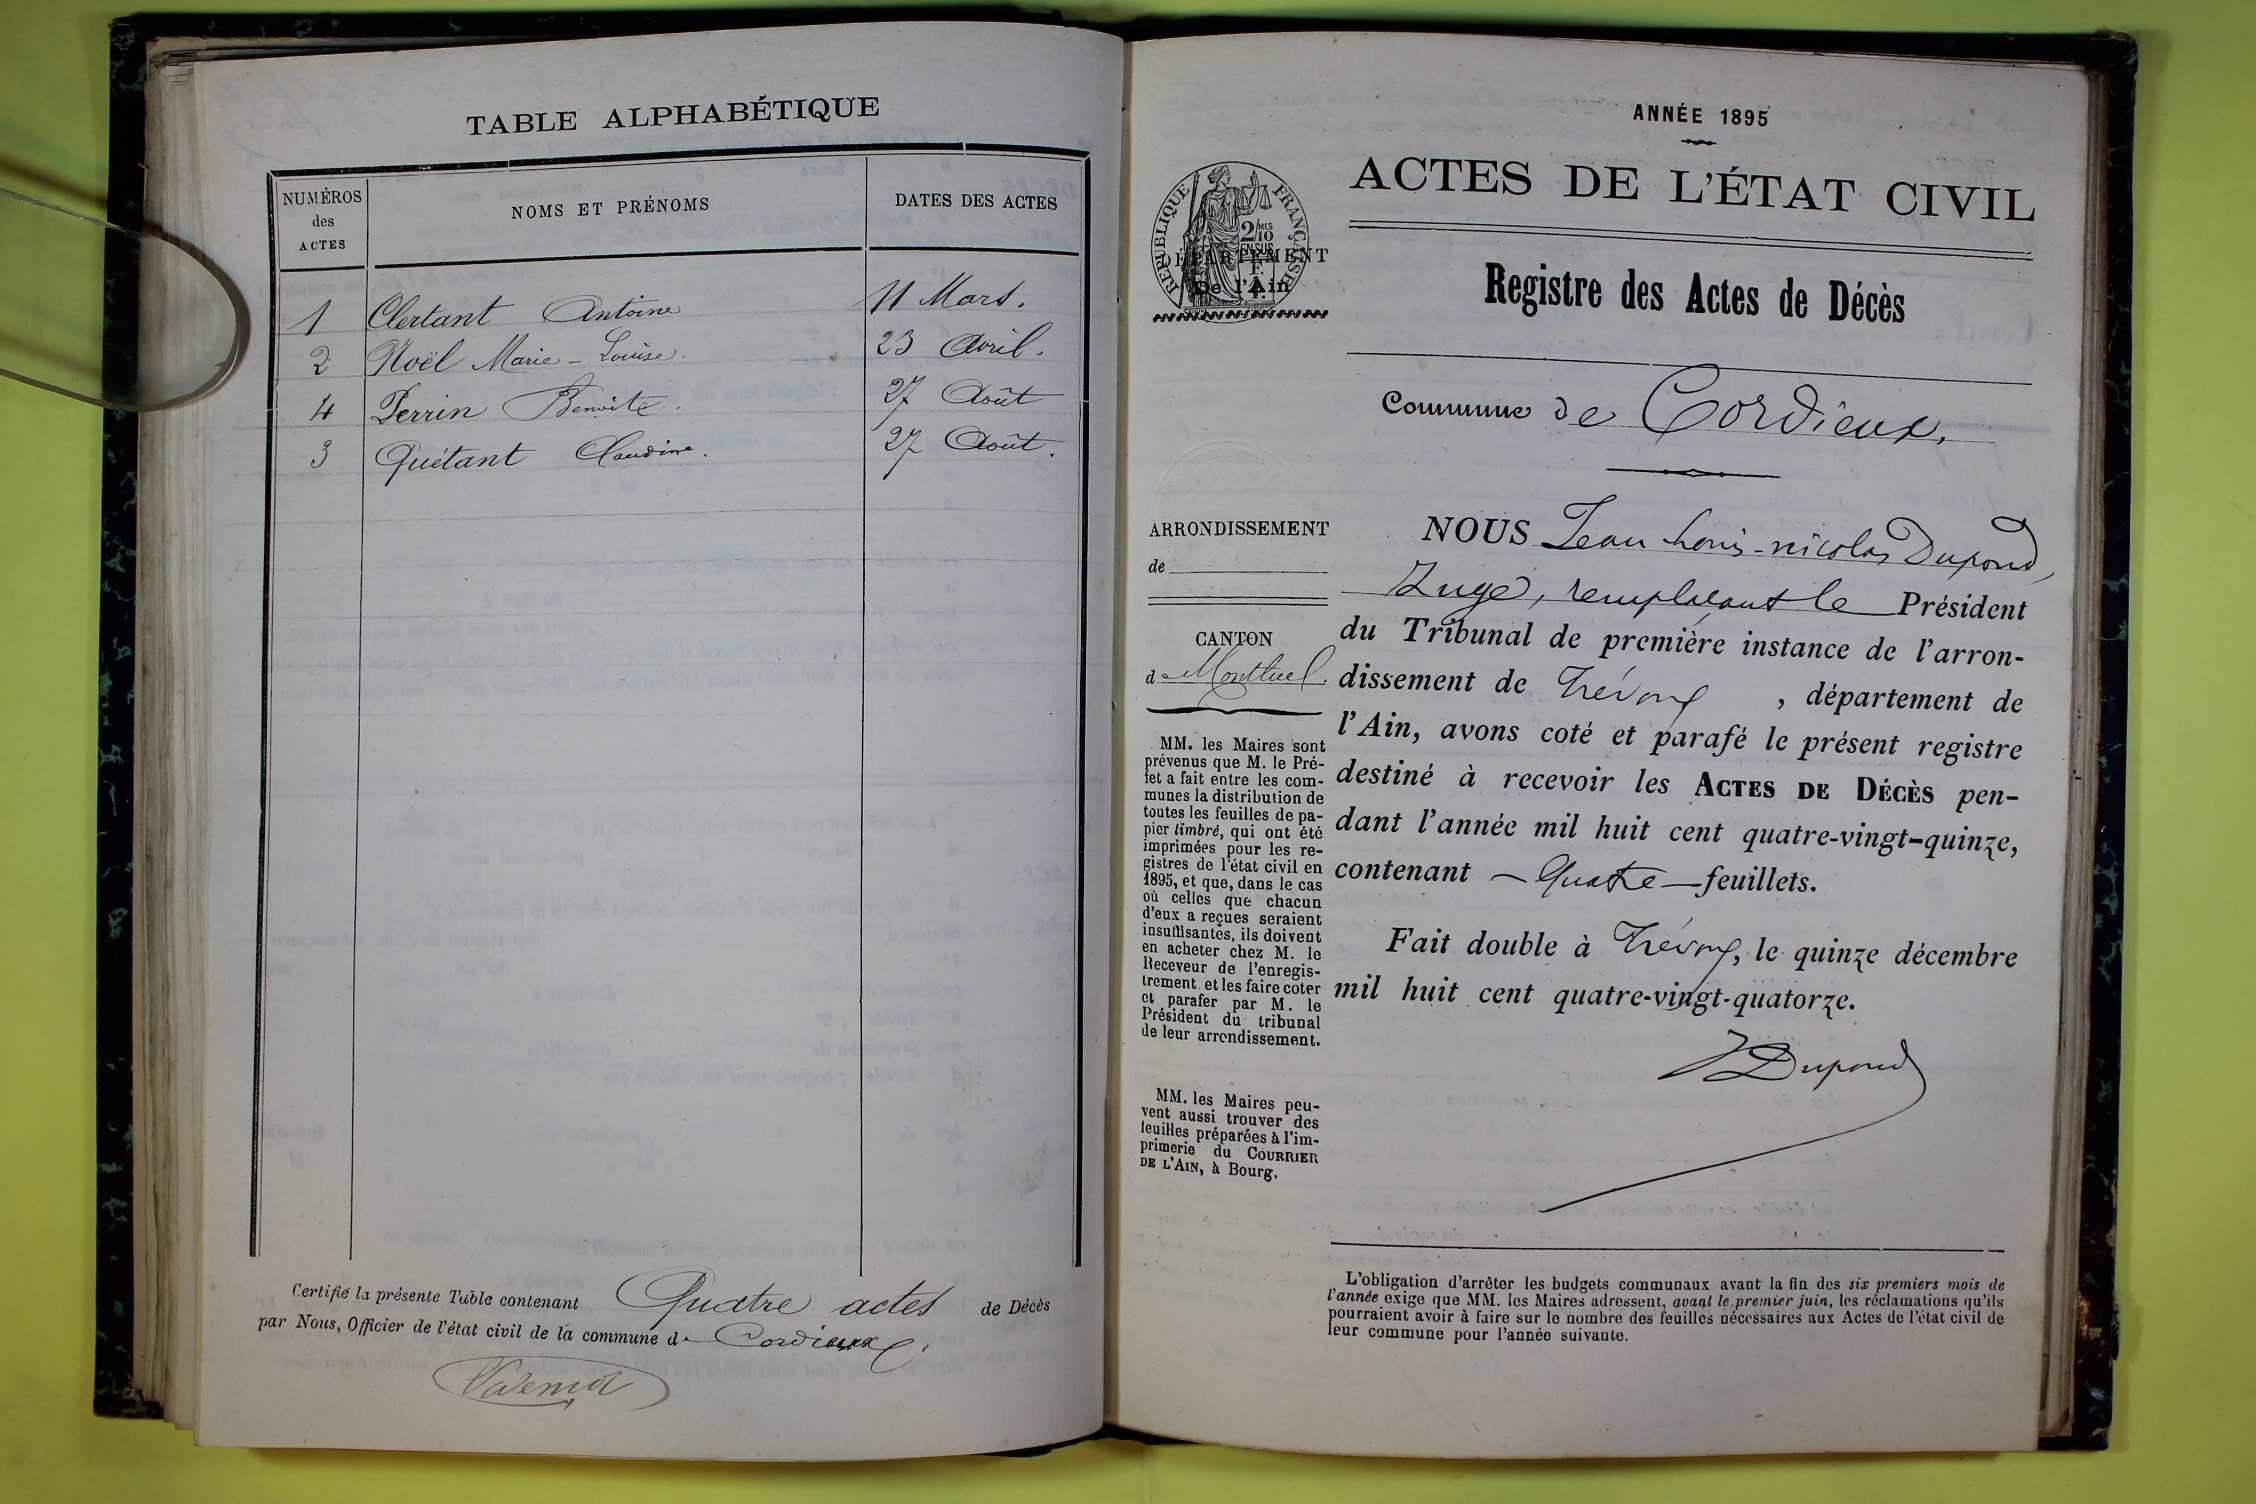 TABLE ALPHABÉTIQUE
NUMÉROS
des
ACTES
NOMS ET PRÉNOMS
DATES DES ACTES
1 Clertant Antoine 11 Mars.
2 Noël Marie-Louise. 23 Avril.
4 Perrin Benoite. 27 Août
3 Quétant Claudine. 27 Août.
Certifié la présente Table contenant Quatre actes de Décès
par Nous, Officier de l'état civil de la commune de Cordieux.
ANNÉE 1895
ACTES DE L'ÉTAT CIVIL
RÉPUBLIQUE FRANÇAISE
2/10MES
EN SUS
DÉPARTEMENT
De l'Ain
Registre des Actes de Décès
Commune de Cordieux.
ARRONDISSEMENT
de
CANTON
de Montluel.
MM. les Maires sont
prévenus que M. le Pré-
fet a fait entre les com-
munes la distribution de
toutes les feuilles de pa-
pier timbré, qui ont été
imprimées pour les re-
gistres de l'état civil en
1895, et que, dans le cas
où celles que chacun
d'eux a reçues seraient
insuffisantes, ils doivent
en acheter chez M. le
Receveur de l'enregis-
trement et les faire coter
et parafer par M. le
Président du tribunal
de leur arrondissement.
MM. les Maires peu-
vent aussi trouver des
feuilles préparées à l'im-
primerie du COURRIER
DE L'AIN, à Bourg.
NOUS Jean Louis-nicolas Dupond,
Juge, remplaçant le Président
du Tribunal de première instance de l'arron-
dissement de Trévoux, département de
l'Ain, avons coté et parafé le présent registre
destiné à recevoir les ACTES DE DÉCÈS pen-
dant l'année mil huit cent quatre-vingt-quinze,
contenant — Quatre — feuillets.
Fait double à Trévoux, le quinze décembre
mil huit cent quatre-vingt-quatorze.
JDupond
L'obligation d'arrêter les budgets communaux avant la fin des six premiers mois de
l'année exige que MM. les Maires adressent, avant le premier juin, les réclamations qu'ils
pourraient avoir à faire sur le nombre des feuilles nécessaires aux Actes de l'état civil de
leur commune pour l'année suivante.